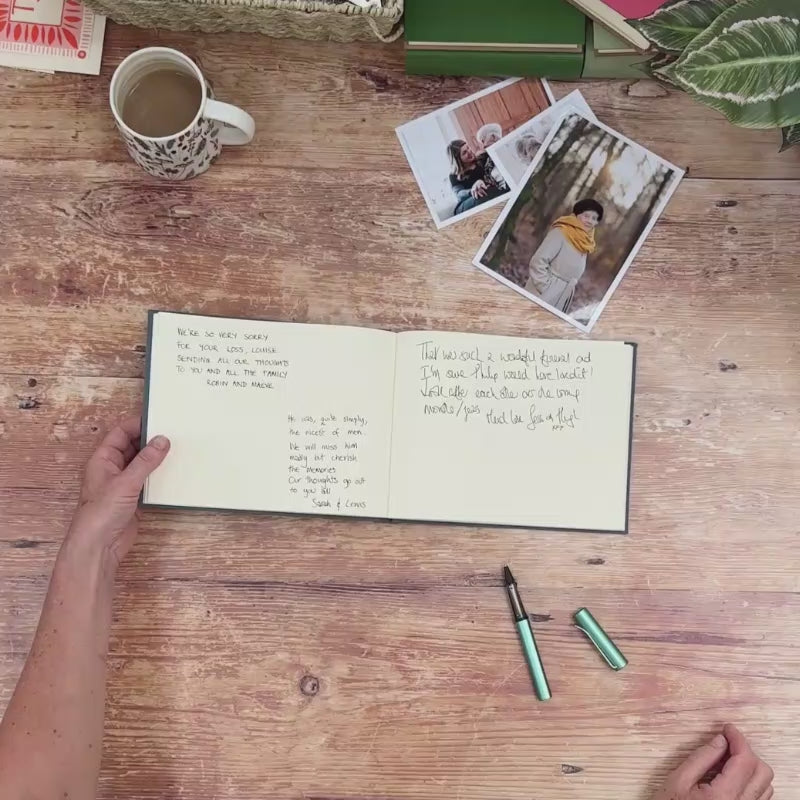 WE'RE SO VERY SORRY
FOR YOUR LOSS, LOUISE
SENDING ALL OUR THOUGHTS
TO YOU AND ALL THE FAMILY
ROBIN AND MAEVE
He was, quite simply,
the nicest of men.
We will miss him
madly but cherish
the memories
Our thoughts go out
to you all
Sarah & Lewis
That was such a wonderful funeral and
I'm sure Philip would have loved it!
Look after each other over the coming
months/years Much love